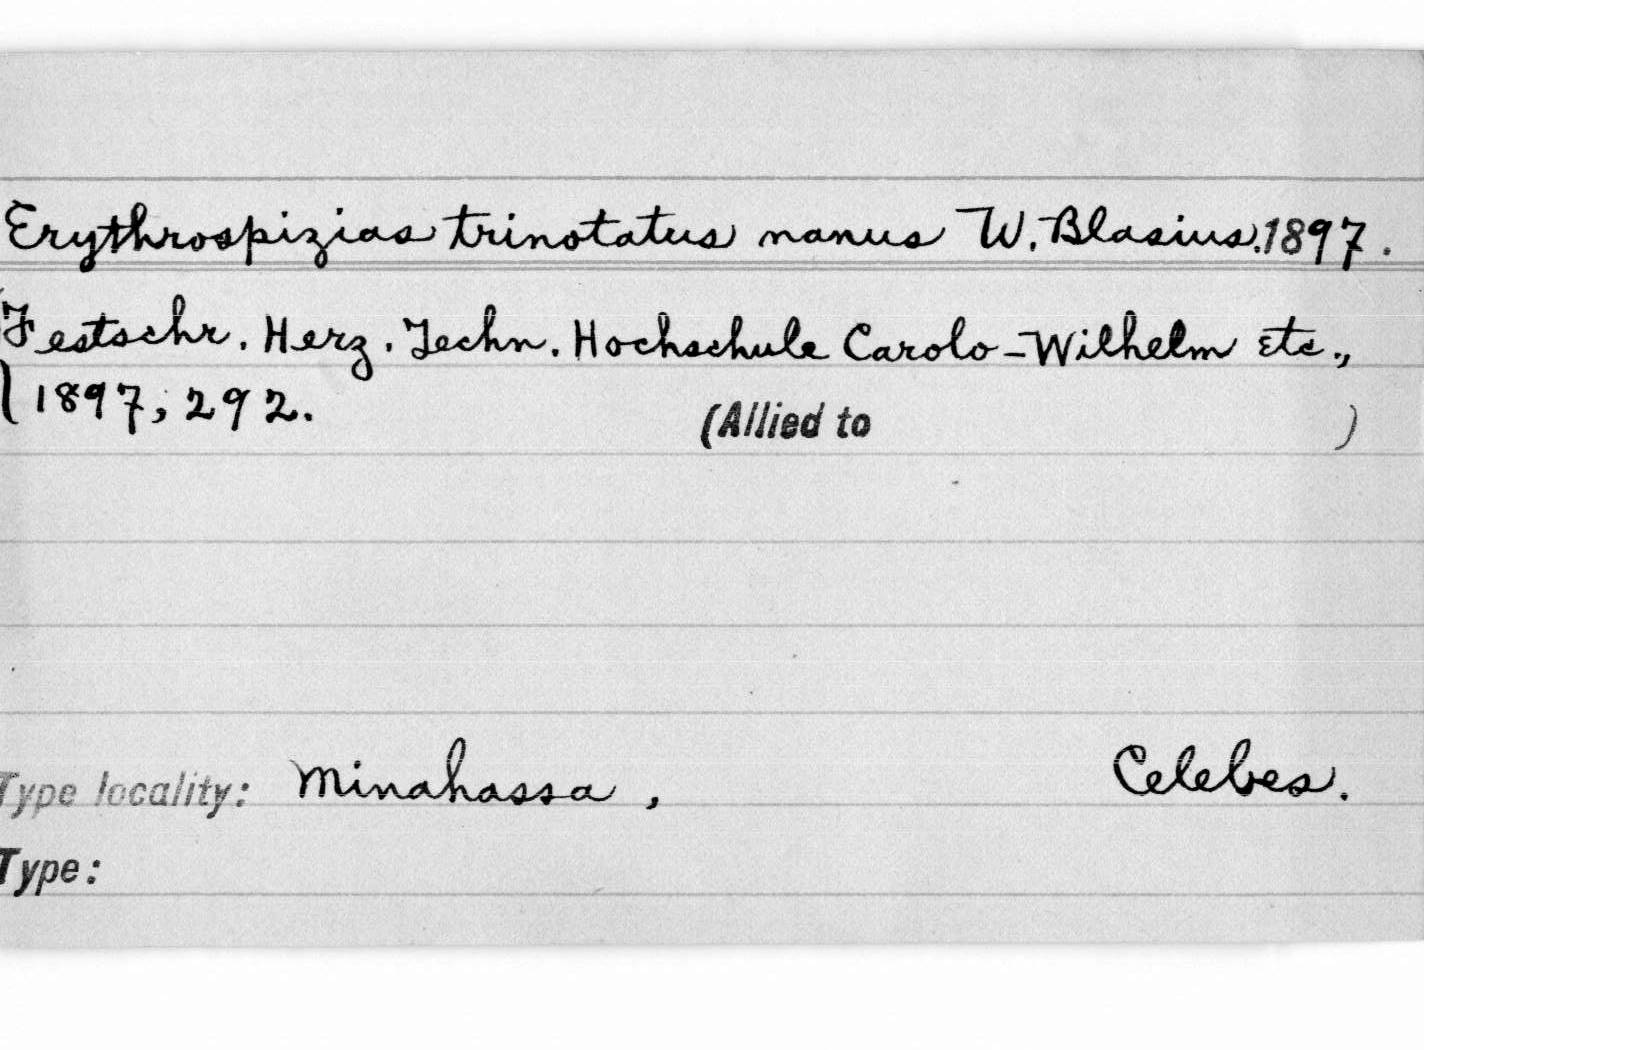 Erythrospizias trinotatus nanus W. Blasius. 1897.
Festschr. Herz. Techn. Hochschule Carolo-Wilhelm etc.,
1897, 292.
(Allied to )
Type locality: Minahassa, Celebes.
Type: